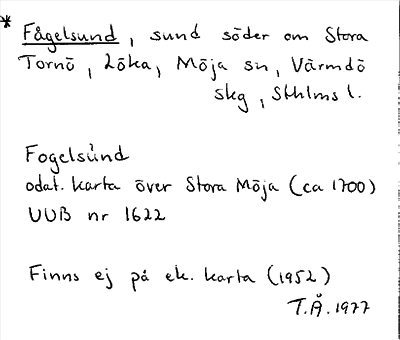 * Fågelsund, sund söder om Stora
Tornö, Löka, Möja sn, Värmdö
skg, Sthlms l.
Fogelsúnd
odat. karta över Stora Möja (ca 1700)
UUB nr 1622
Finns ej på ek. karta (1952)
T.Å. 1977